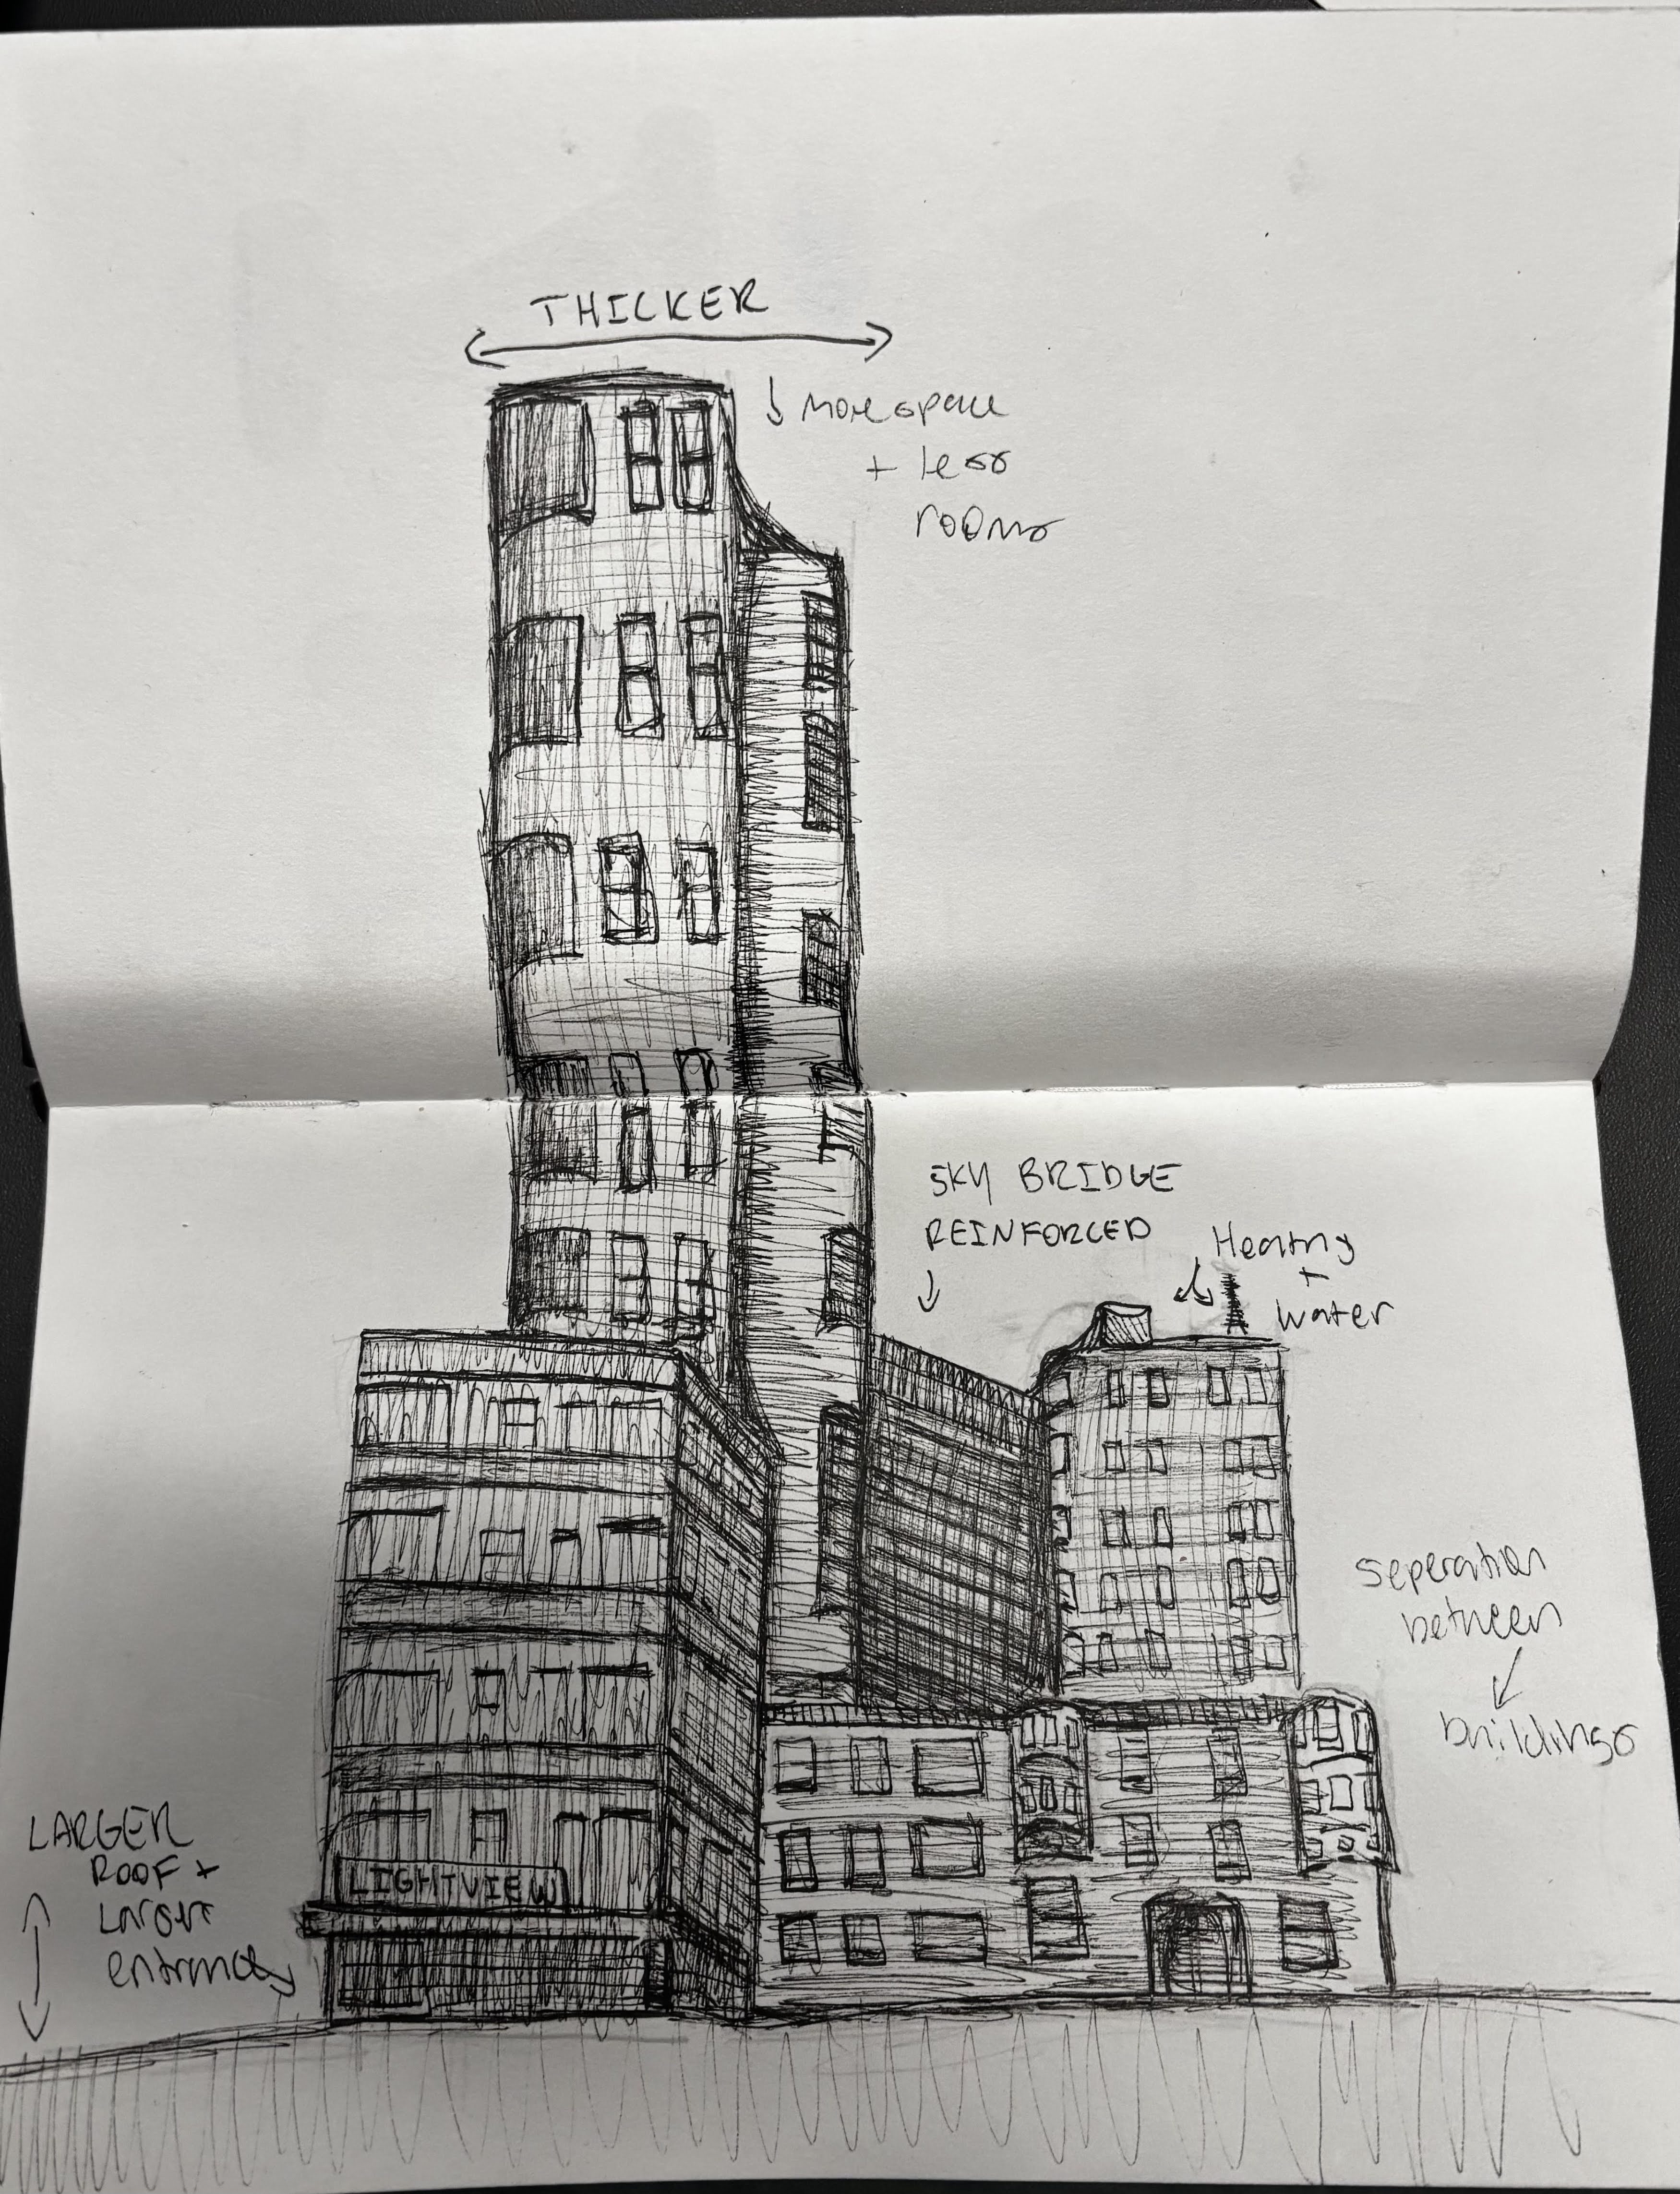 THICKER
more space
+ less
rooms
SKY BRIDGE
REINFORCED
Heating
+
water
seperation
between
buildings
LARGER
ROOF +
Larger
entrance
LIGHTVIEW